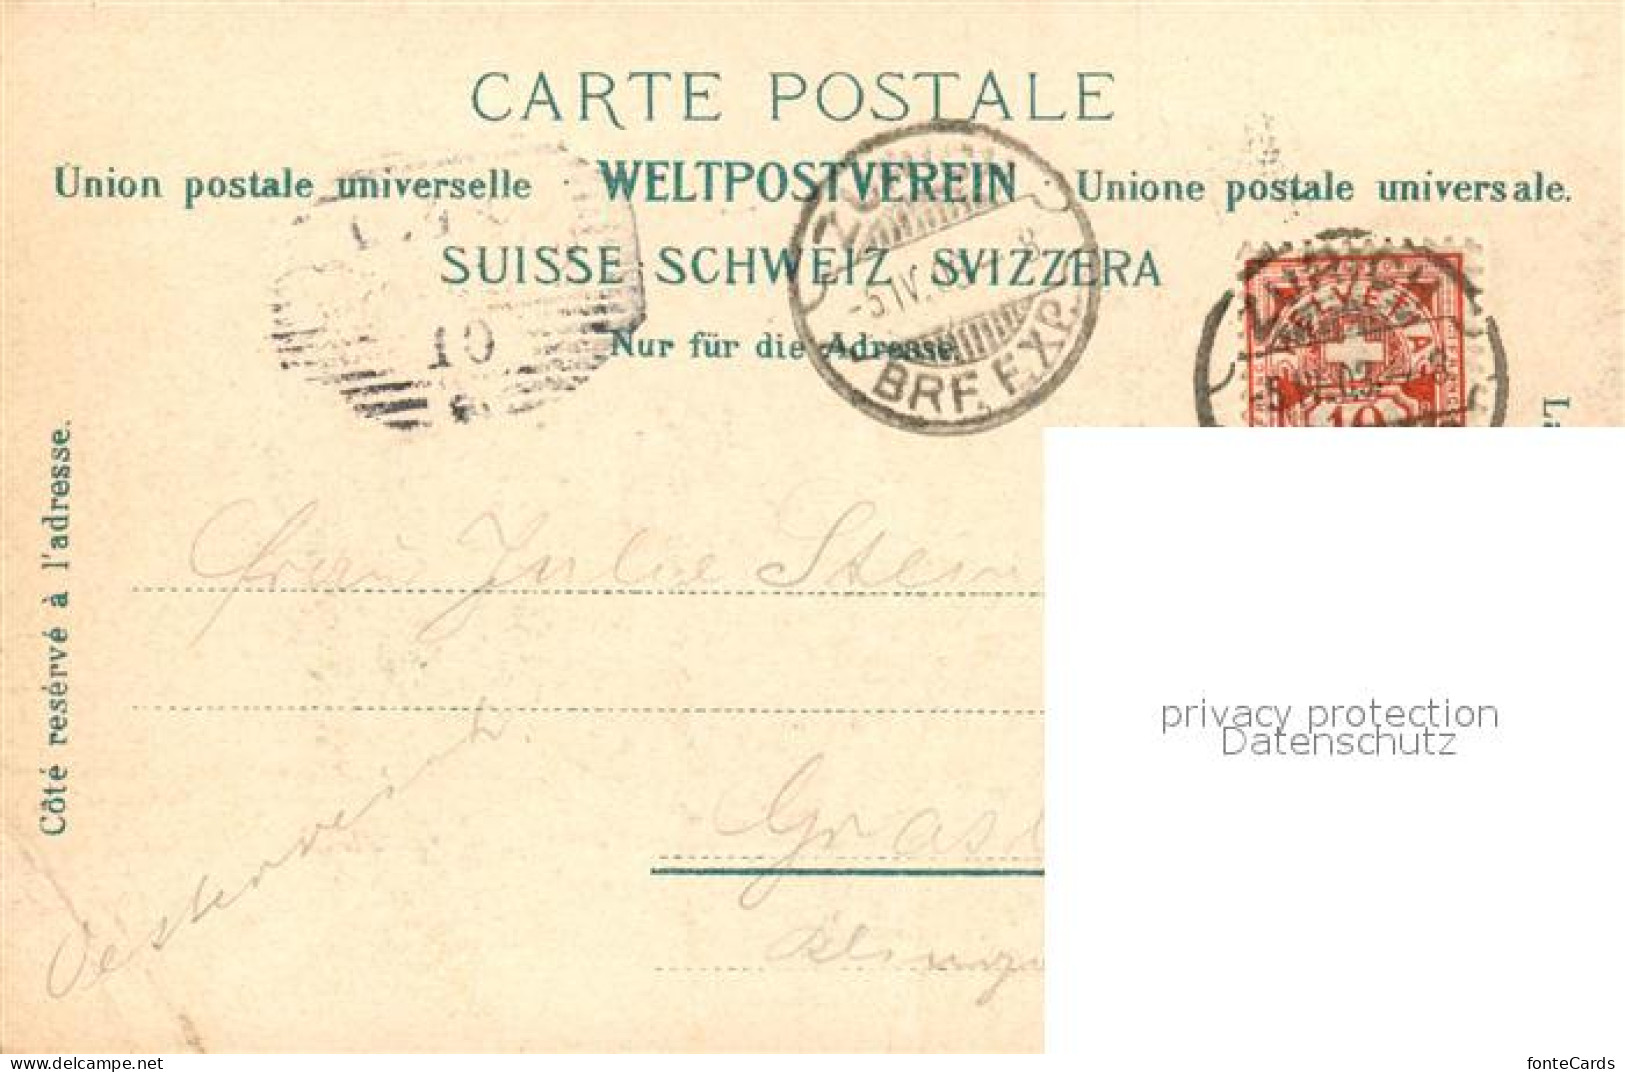 CARTE POSTALE
Union postale universelle WELTPOSTVEREIN Unione postale universale.
SUISSE SCHWEIZ SVIZZERA
Nur für die Adresse.
10
-5.IV. 8
BRF. EXP.
HELVETIA
10
Côté resérvé à l'adresse.
Julie Stein
Oesterreich
privacy protection
Datenschutz
the-world-of-stamps.delcampe.net
fonteCards